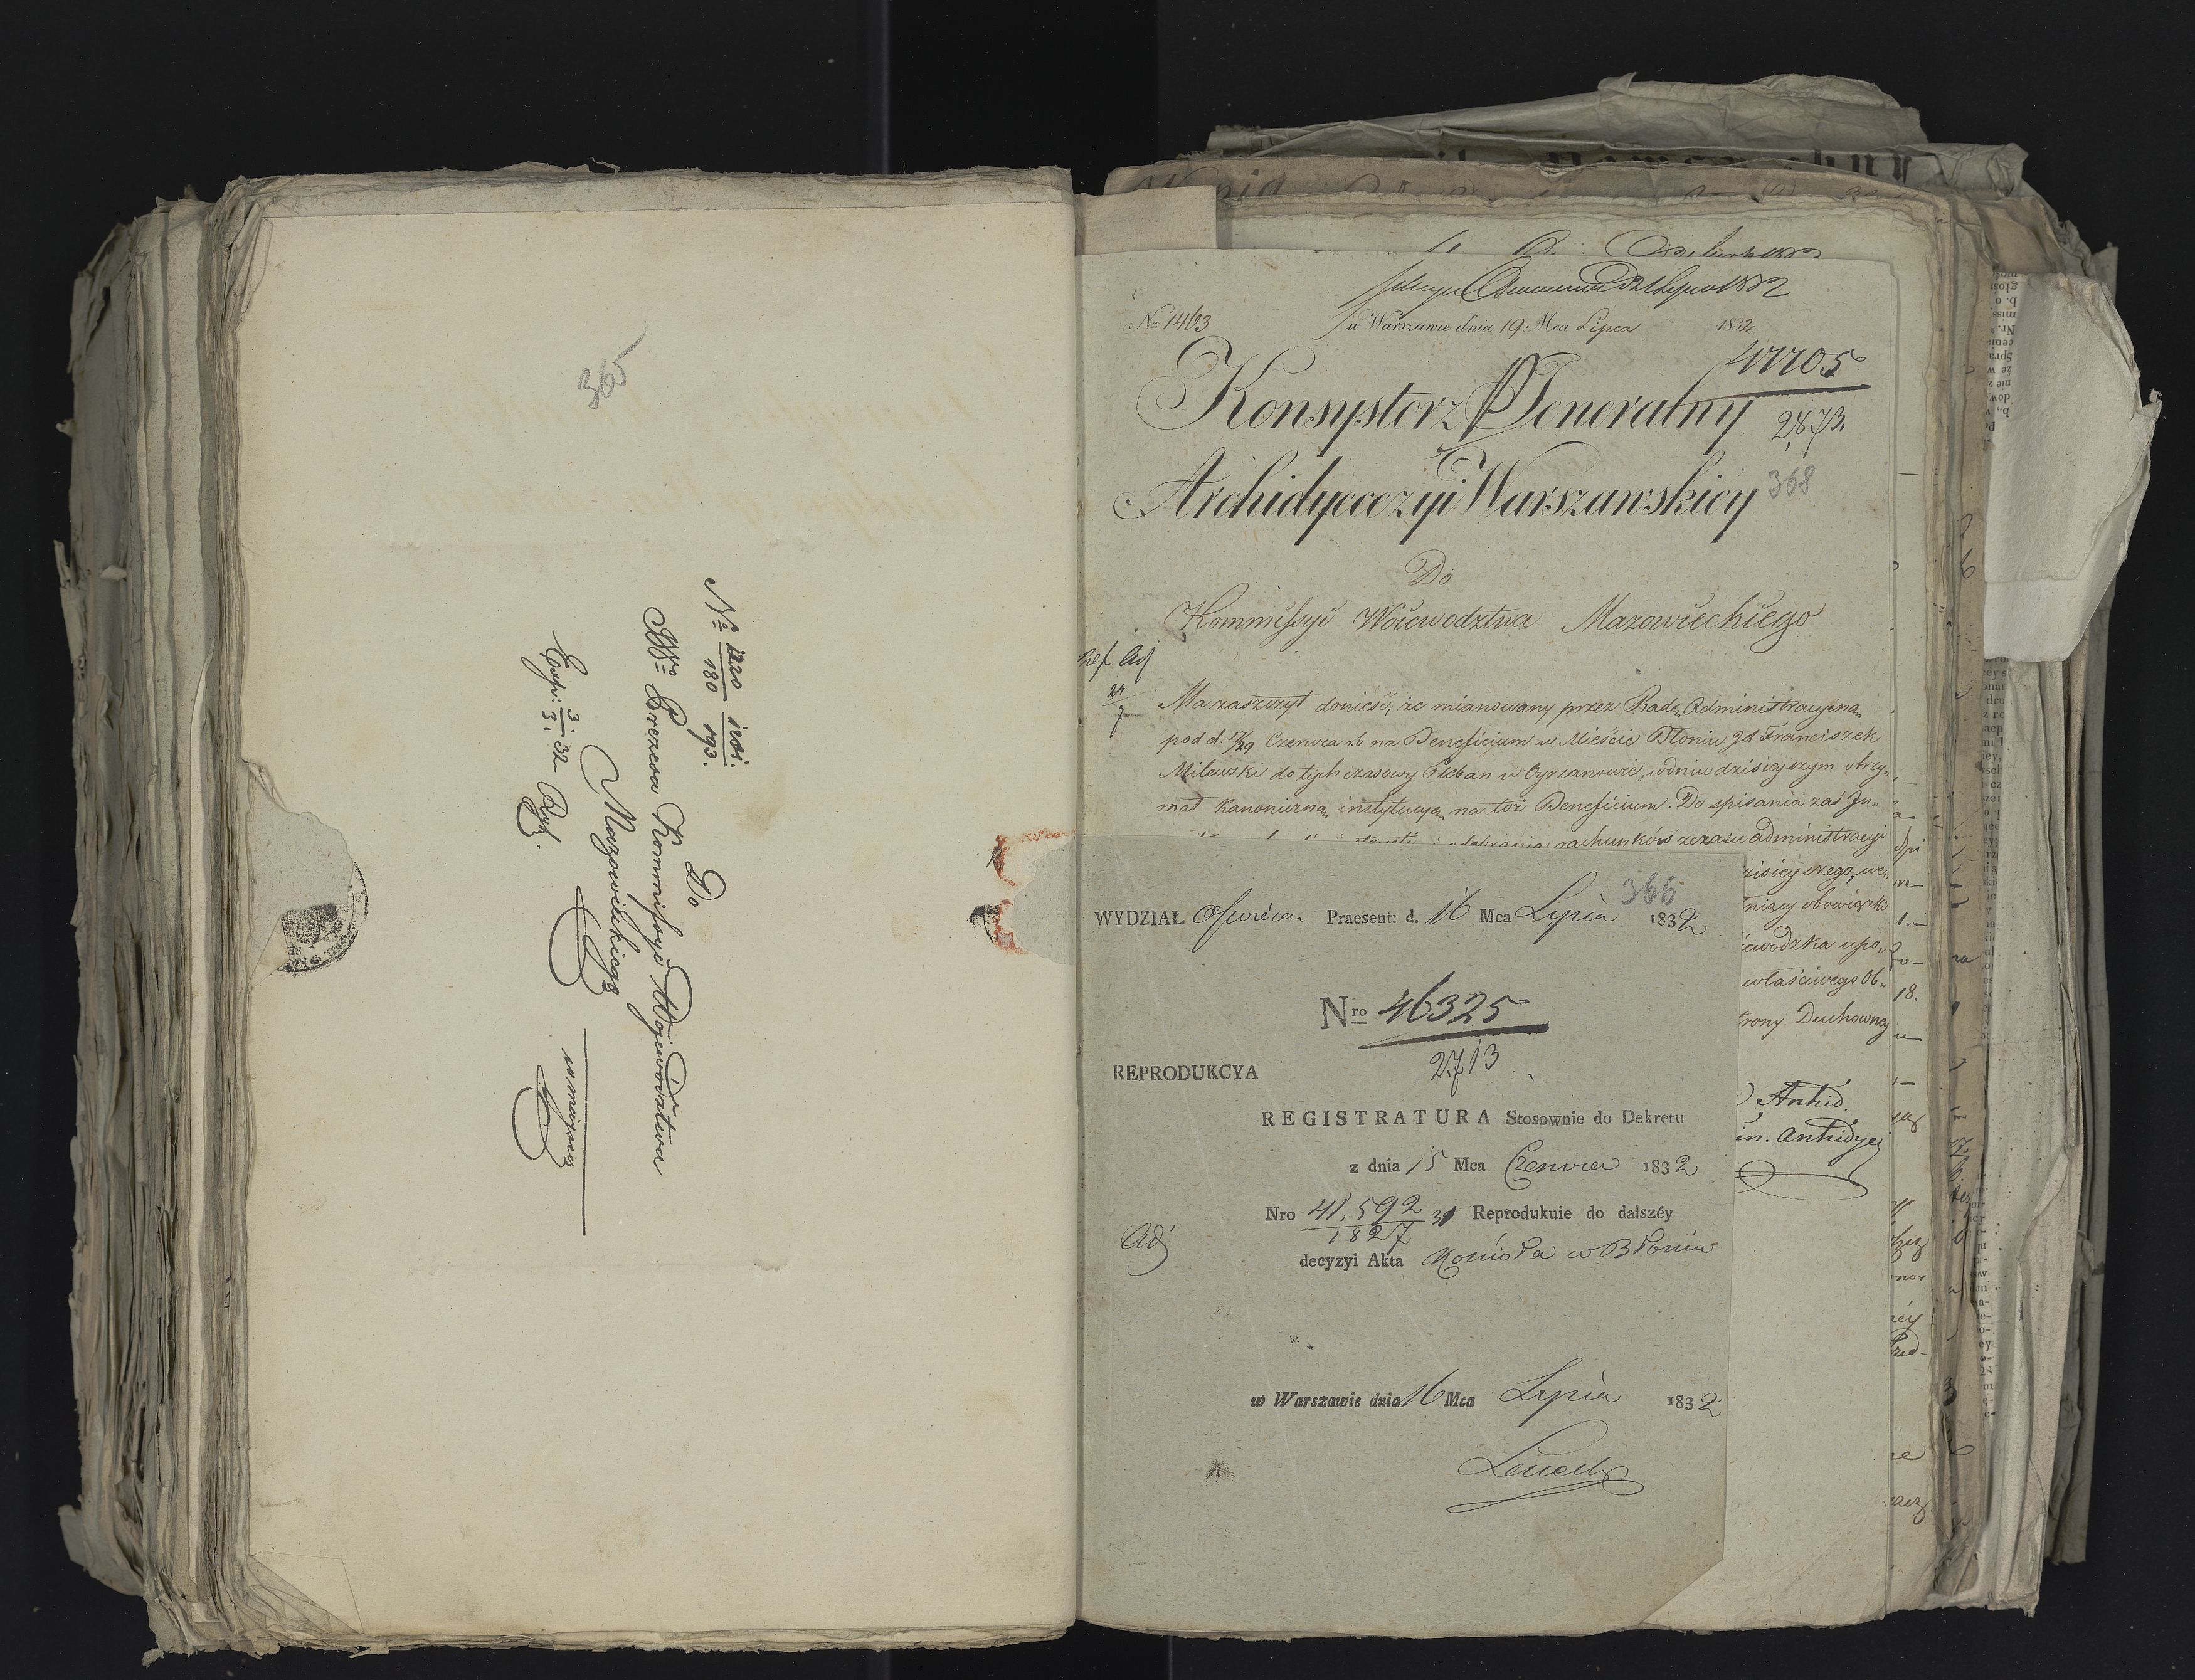 365
Nº 1220 1201.
180 193.
Do
JWº Prezesa Kommissyi Województwa
Mazowieckiego
w miejscu
Exp: 3/3 32
Nº 1463
w Warszawie dnia 19 Mca Lipca 1832.
47705
2873.
Konsystorz Jeneralny
Archidyecezyi Warszawskiey
368
Do
Kommissyi Woiewodztwa Mazowieckiego
Ref Adj
24/7
Ma zaszczyt donieść, że mianowany przez Radę Administracyiną
pod d. 17/29 Czerwca r.b na Beneficium w Mieście Błoniu Xd Franciszek
Milewski dotychczasowy Pleban w Cyrzanowie, w dniu dzisieyszym otrzy„
mał kanoniczną instytucyą na toż Beneficium. Do spisania zaś In„
rachunków z czasu administracyi
dzisieyszego, we„
łniący obowiązki
iewodzka upo„
właściwego Ob„
trony Duchowney
Archid.
in. Archidyec
366
WYDZIAŁ Oświéce Praesent: d. 16 Mca Lipca 1832
Nro 46325
2713
REPRODUKCYA
REGISTRATURA Stosownie do Dekretu
z dnia 15 Mca Czerwca 1832
Nro 41,592 31 Reprodukuie do dalszéy
1827
Adj
decyzyi Akta Kościoła w Błoniu
w Warszawie dnia 16 Mca Lipca 1832